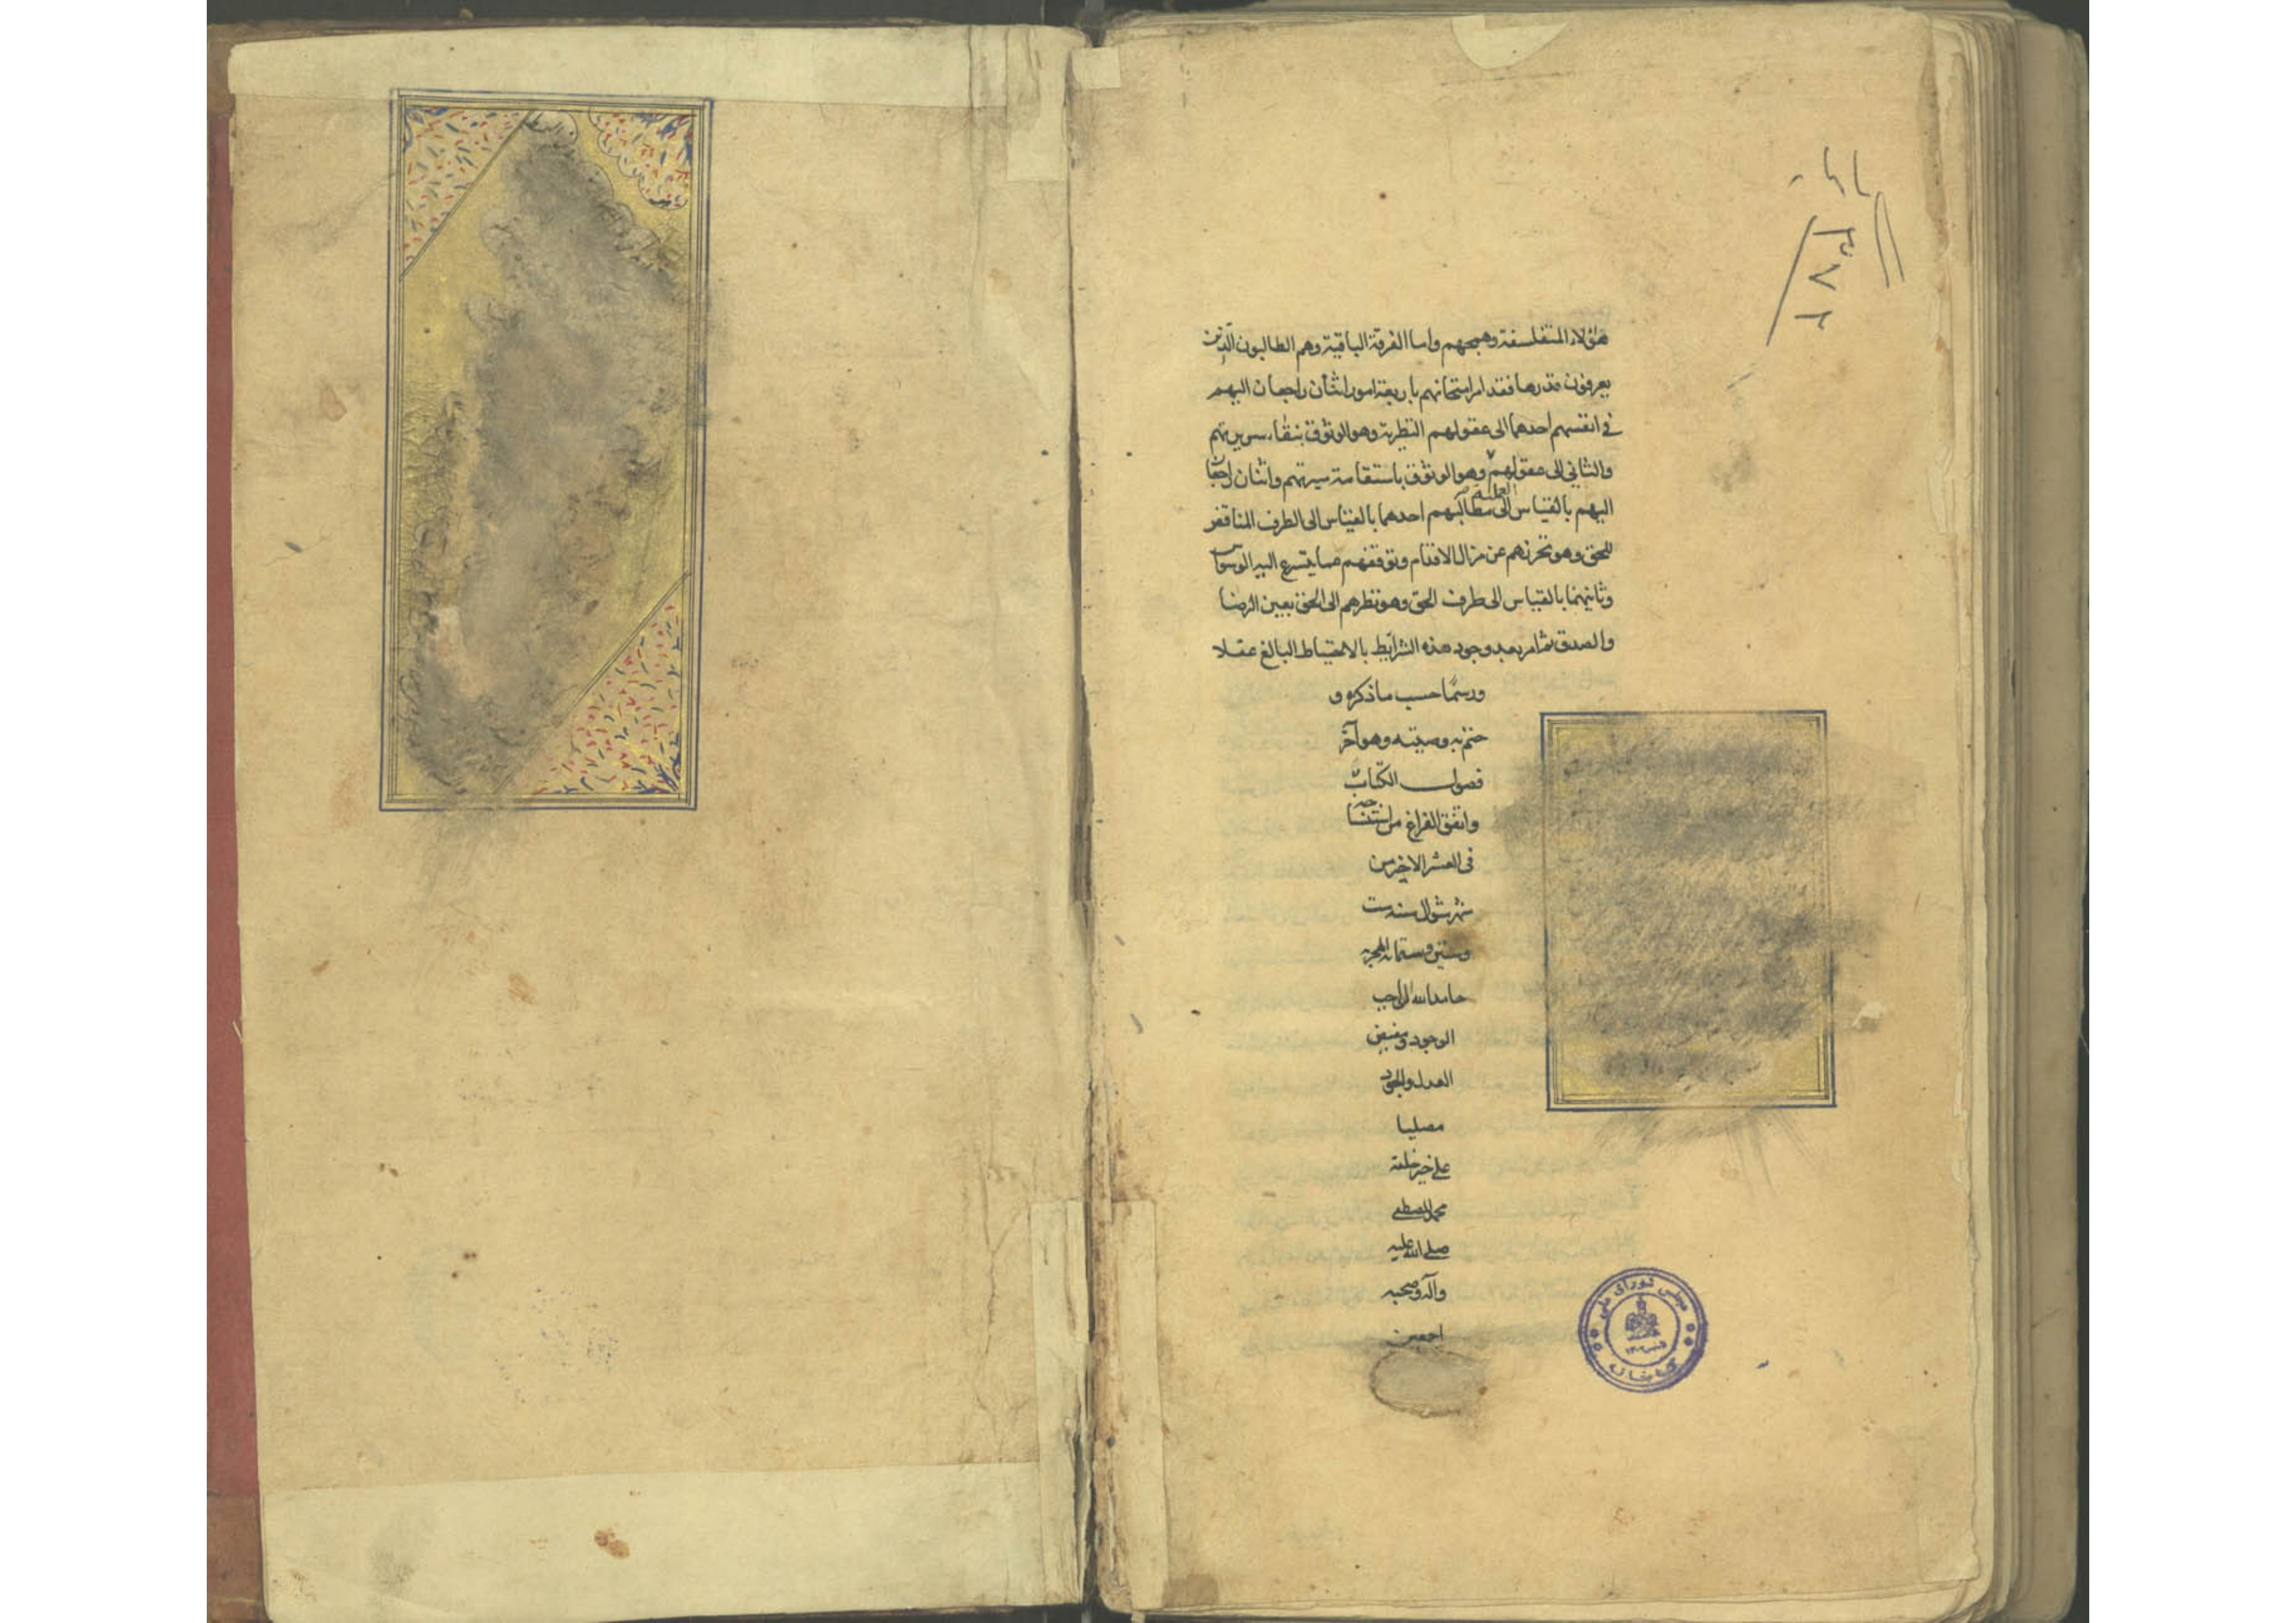 هؤلاء المتفلسفة وهمجهم واما الفرقة الباقية وهم الطالبون الّذين
يعرفون قدرها فقد امر امتحانهم باربعة امور اثنان راجعان اليهم
في انفسهم احدهما الى عقولهم النظرية وهو الوثوق بنقاء سريرتهم
والثاني الى عقولهم وهو الوثوق باستقامة سيرتهم واثنان راجعان
العملية
اليهم بالقياس الى مطالبهم احدهما بالقياس الى الطرف المناقض
للحق وهو تحرزهم عن مزال الاقدام وتوقفهم عما يتسرع اليه الوسواس
وثانيهما بالقياس الى طرف الحق وهو نظرهم الى الحق بعين الرضا
والصدق ثم امر بعد وجود هذه الشرايط بالاحتياط البالغ عقلا
ورسمًا حسب ما ذكره و
ختم به وصيته وهو آخر
فصول الكتاب
واتفق الفراغ من
في العشر الاخير من
شهر شوال سنة ست
وستين وستمائة الهجرية
حامدا لله الواجب
الوجود ومفيض
العدل والجود
مصليا
على خير خلقه
محمد المصطفى
صلى الله عليه
وآله وصحبه
اجمعين
مجلس شورای ملی
کتابخانه